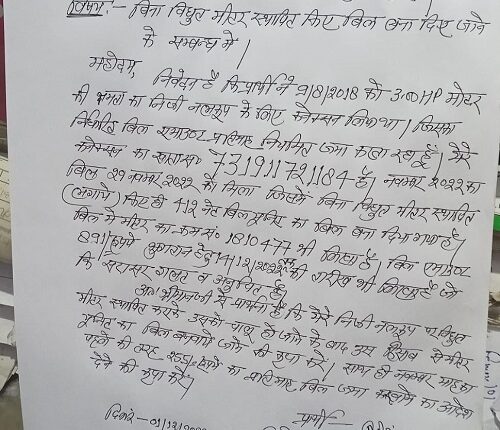 विषय:- बिना विद्युत मीटर स्थापित किए बिल बना दिए जाने
के सम्बन्ध में|
महोदय,
निवेदन है कि प्रार्थी ने 9/8/2018 को 3.00 HP मोटर
की क्षमता का निजी नलकूप के लिए कनेक्शन लिया था| जिसका
निर्धारित बिल एमाउण्ट प्रतिमाह नियमित जमा करता रहा हूँ| मेरे
कनेक्शन का खाता सं० 731911721184 है| नवम्बर 2022 का
बिल 29 नवम्बर 2022 को मिला जिसमें बिना विद्युत मीटर स्थापित
(लगाये) किए ही 412 नेट बिल यूनिट का बिल बना दिया गया है|
बिल में मीटर का क्रम सं० 1810477 भी लिखा है| बिल एमाउण्ट
891/रूपये भुगतान हेतु 14/12/2022 तक की तारीख भी लिखा है जो
कि सरासर गलत व अनुचित है|
अतः श्रीमानजी से प्रार्थना है कि मेरे निजी नलकूप पर विद्युत
मीटर स्थापित कराके उसको चालू हो जाने के बाद उस हिसाब से मीटर
यूनिट का बिल बनवाये जाने की कृपा करें| साथ ही नवम्बर माह का
पहले की तरह रूपये का प्रतिमाह बिल जमा करवाने का आदेश
देने की कृपा करें|
दिनांक -01/12/2022
प्रार्थी -